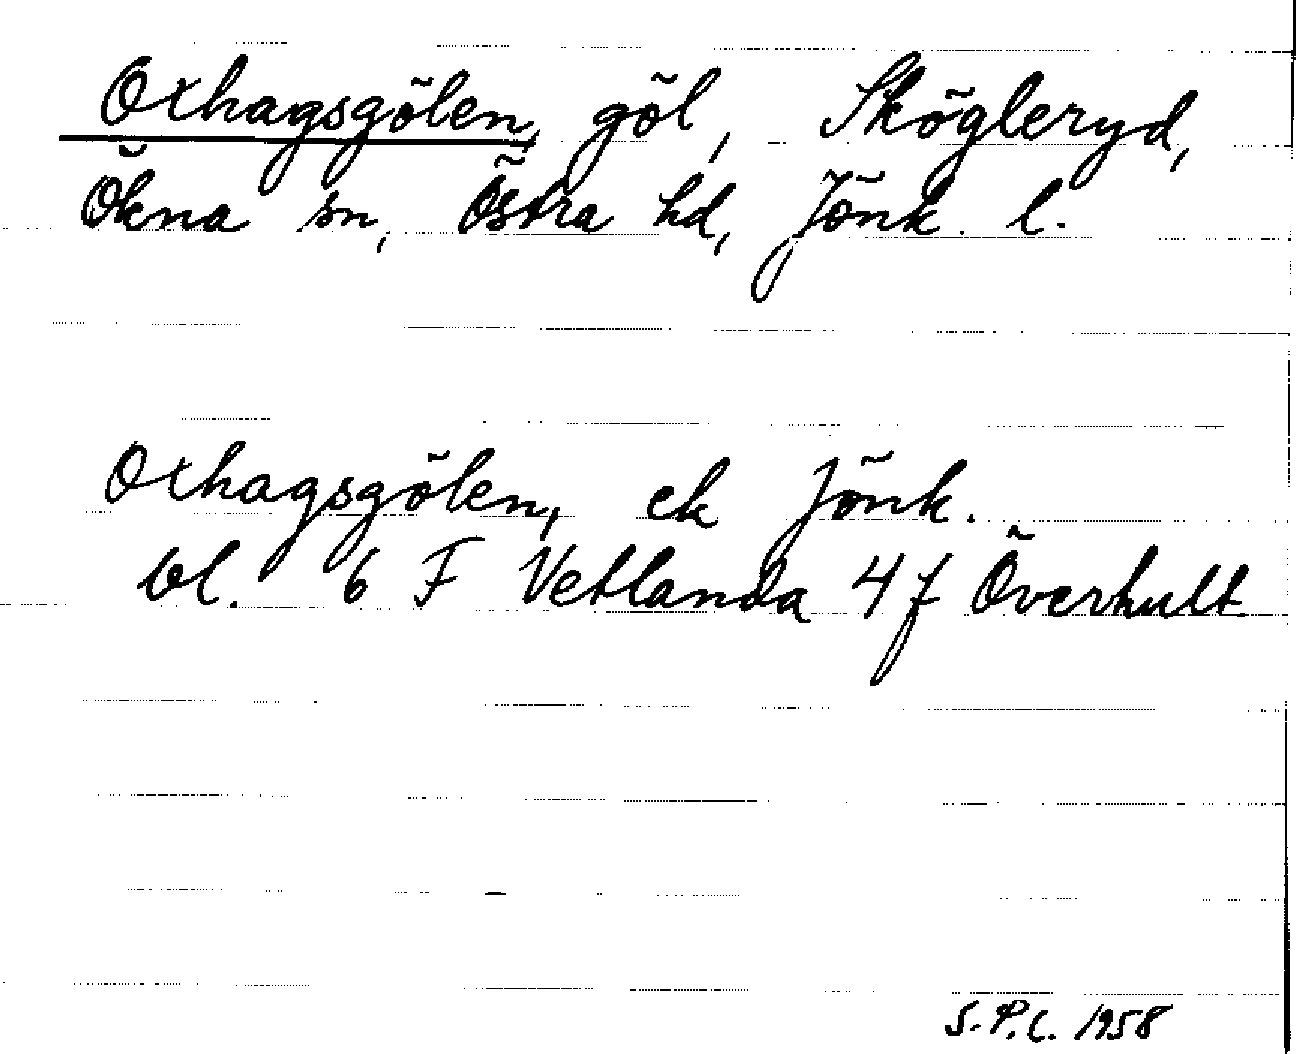 Oxhagsgölen, göl, Skögleryd,
Ökna sn, Östra hd, Jönk. l.
Oxhagsgölen, ek Jönk.
bl. 6 F Vetlanda 4 f Överhult
S.P.C. 1958